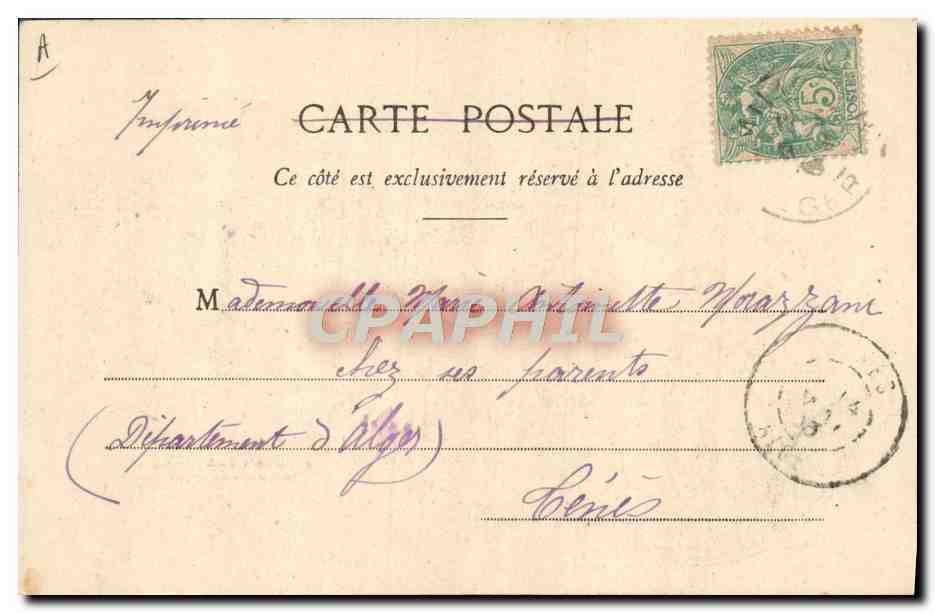 A
Imprimé
CARTE POSTALE
5
POSTES
Ce côté est exclusivement réservé à l'adresse
Mademoiselle Marie Antoinette Morazzani
CPAPHIL
chez ses parents
(Département d'Alger)
Ténès